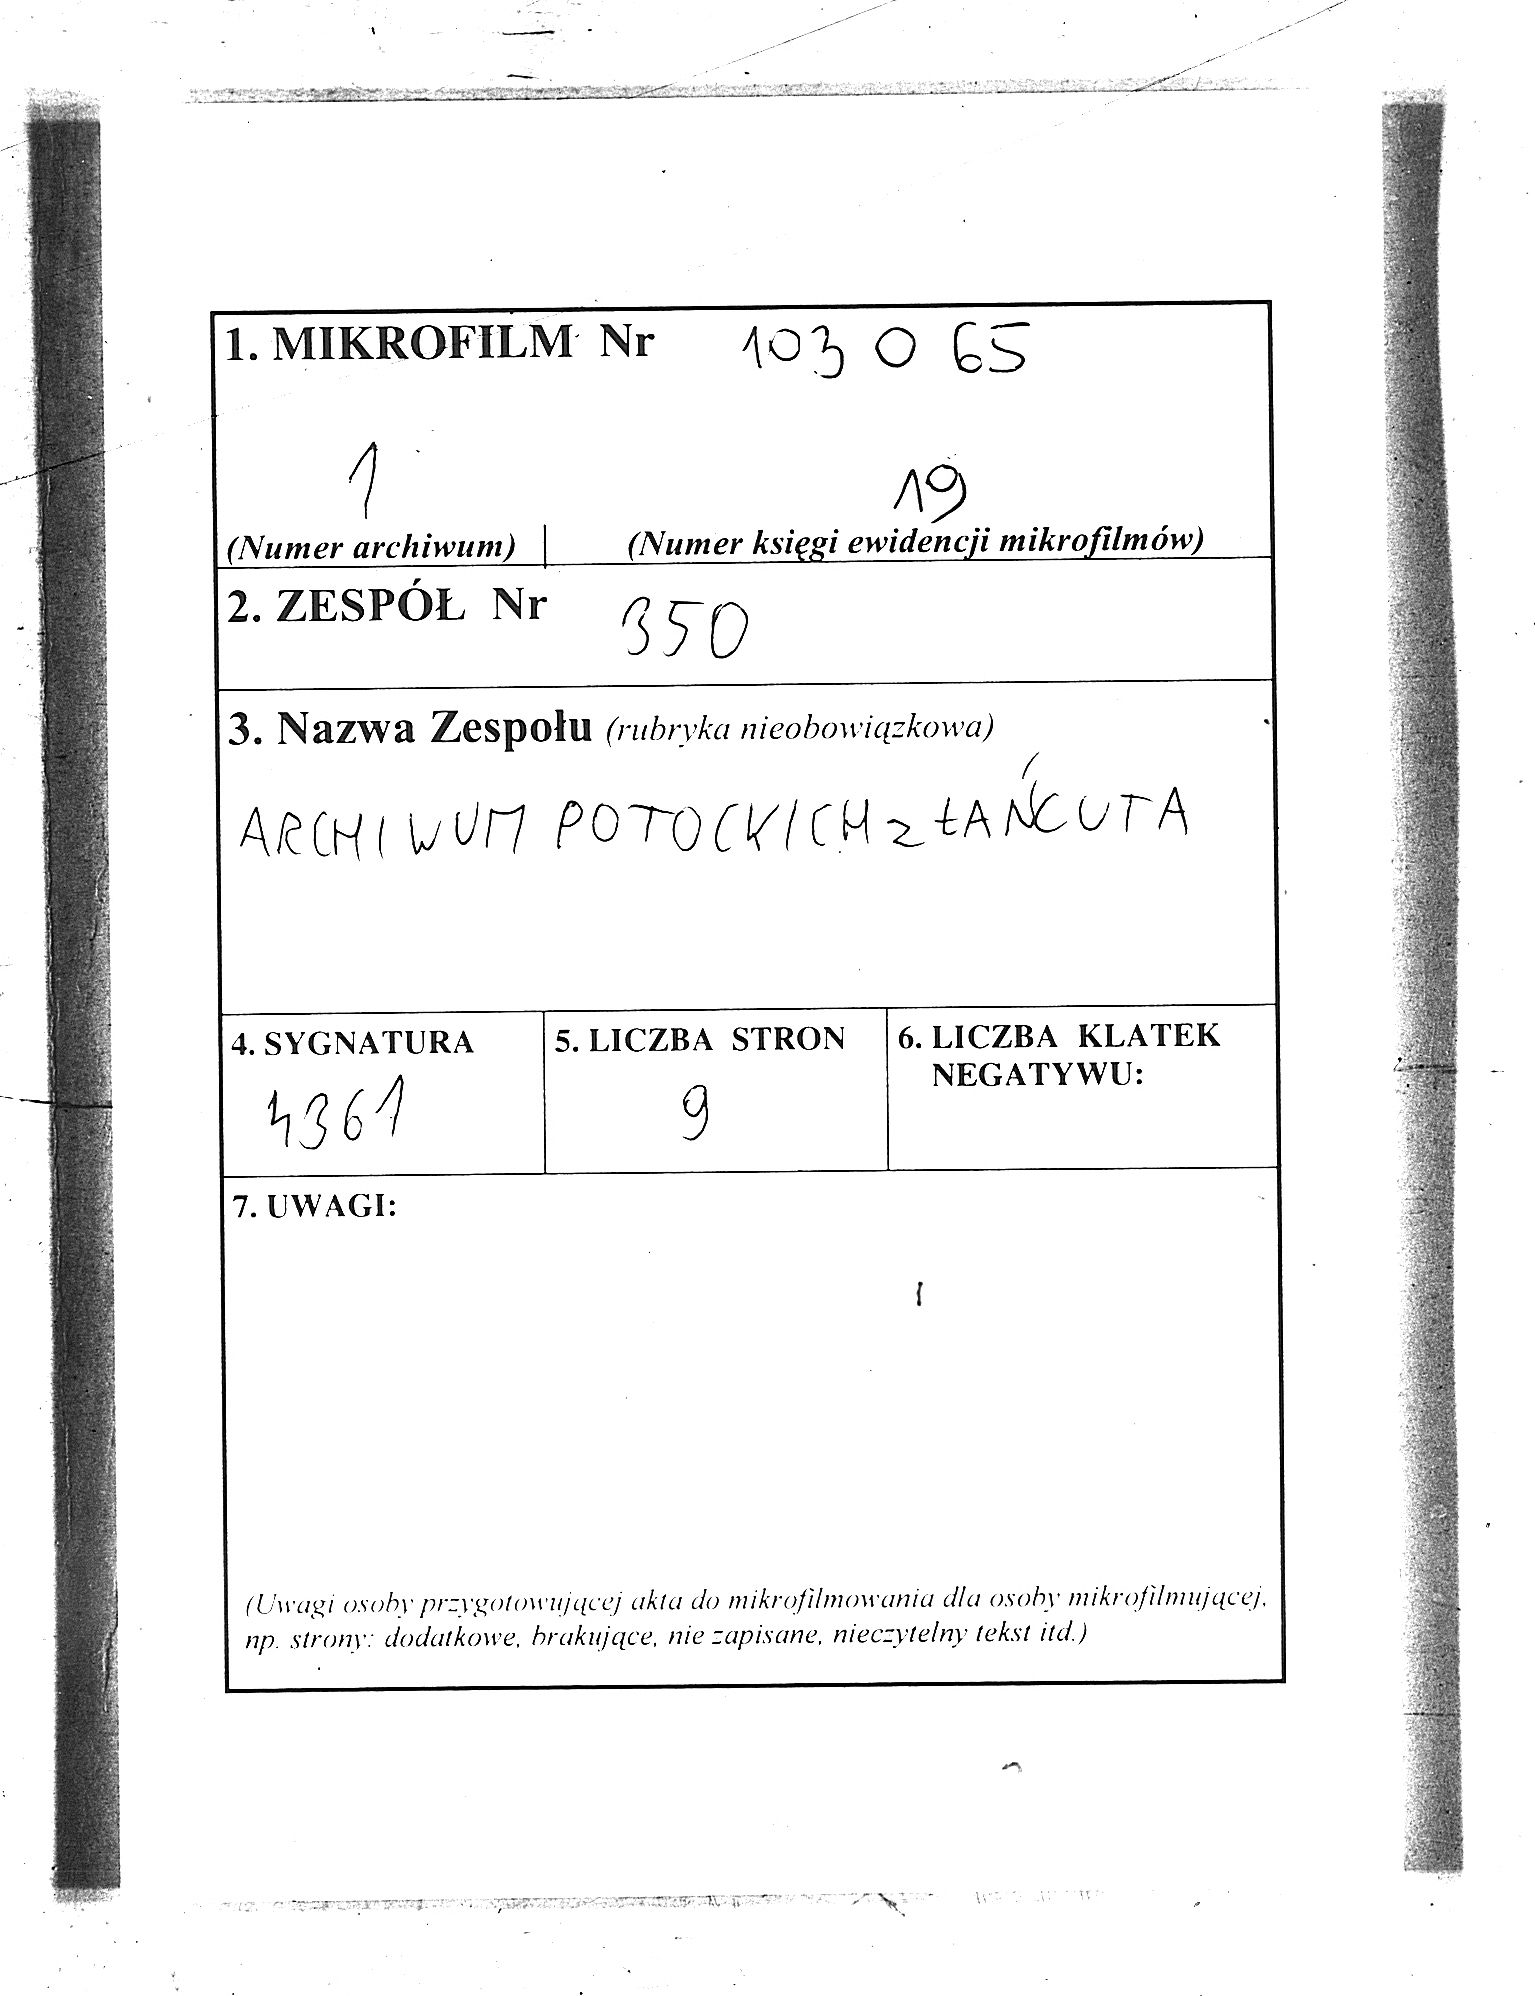 1. MIKROFILM Nr 103 0 65
1 19
(Numer archiwum) (Numer księgi ewidencji mikrofilmów)
2. ZESPÓŁ Nr 350
3. Nazwa Zespołu (rubryka nieobowiązkowa)
ARCHIWUM POTOCKICH z ŁAŃCUTA
4. SYGNATURA 5. LICZBA STRON 6. LICZBA KLATEK
NEGATYWU:
4361 9
7. UWAGI:
(Uwagi osoby przygotowującej akta do mikrofilmowania dla osoby mikrofilmującej,
np. strony: dodatkowe, brakujące, nie zapisane, nieczytelny tekst itd.)